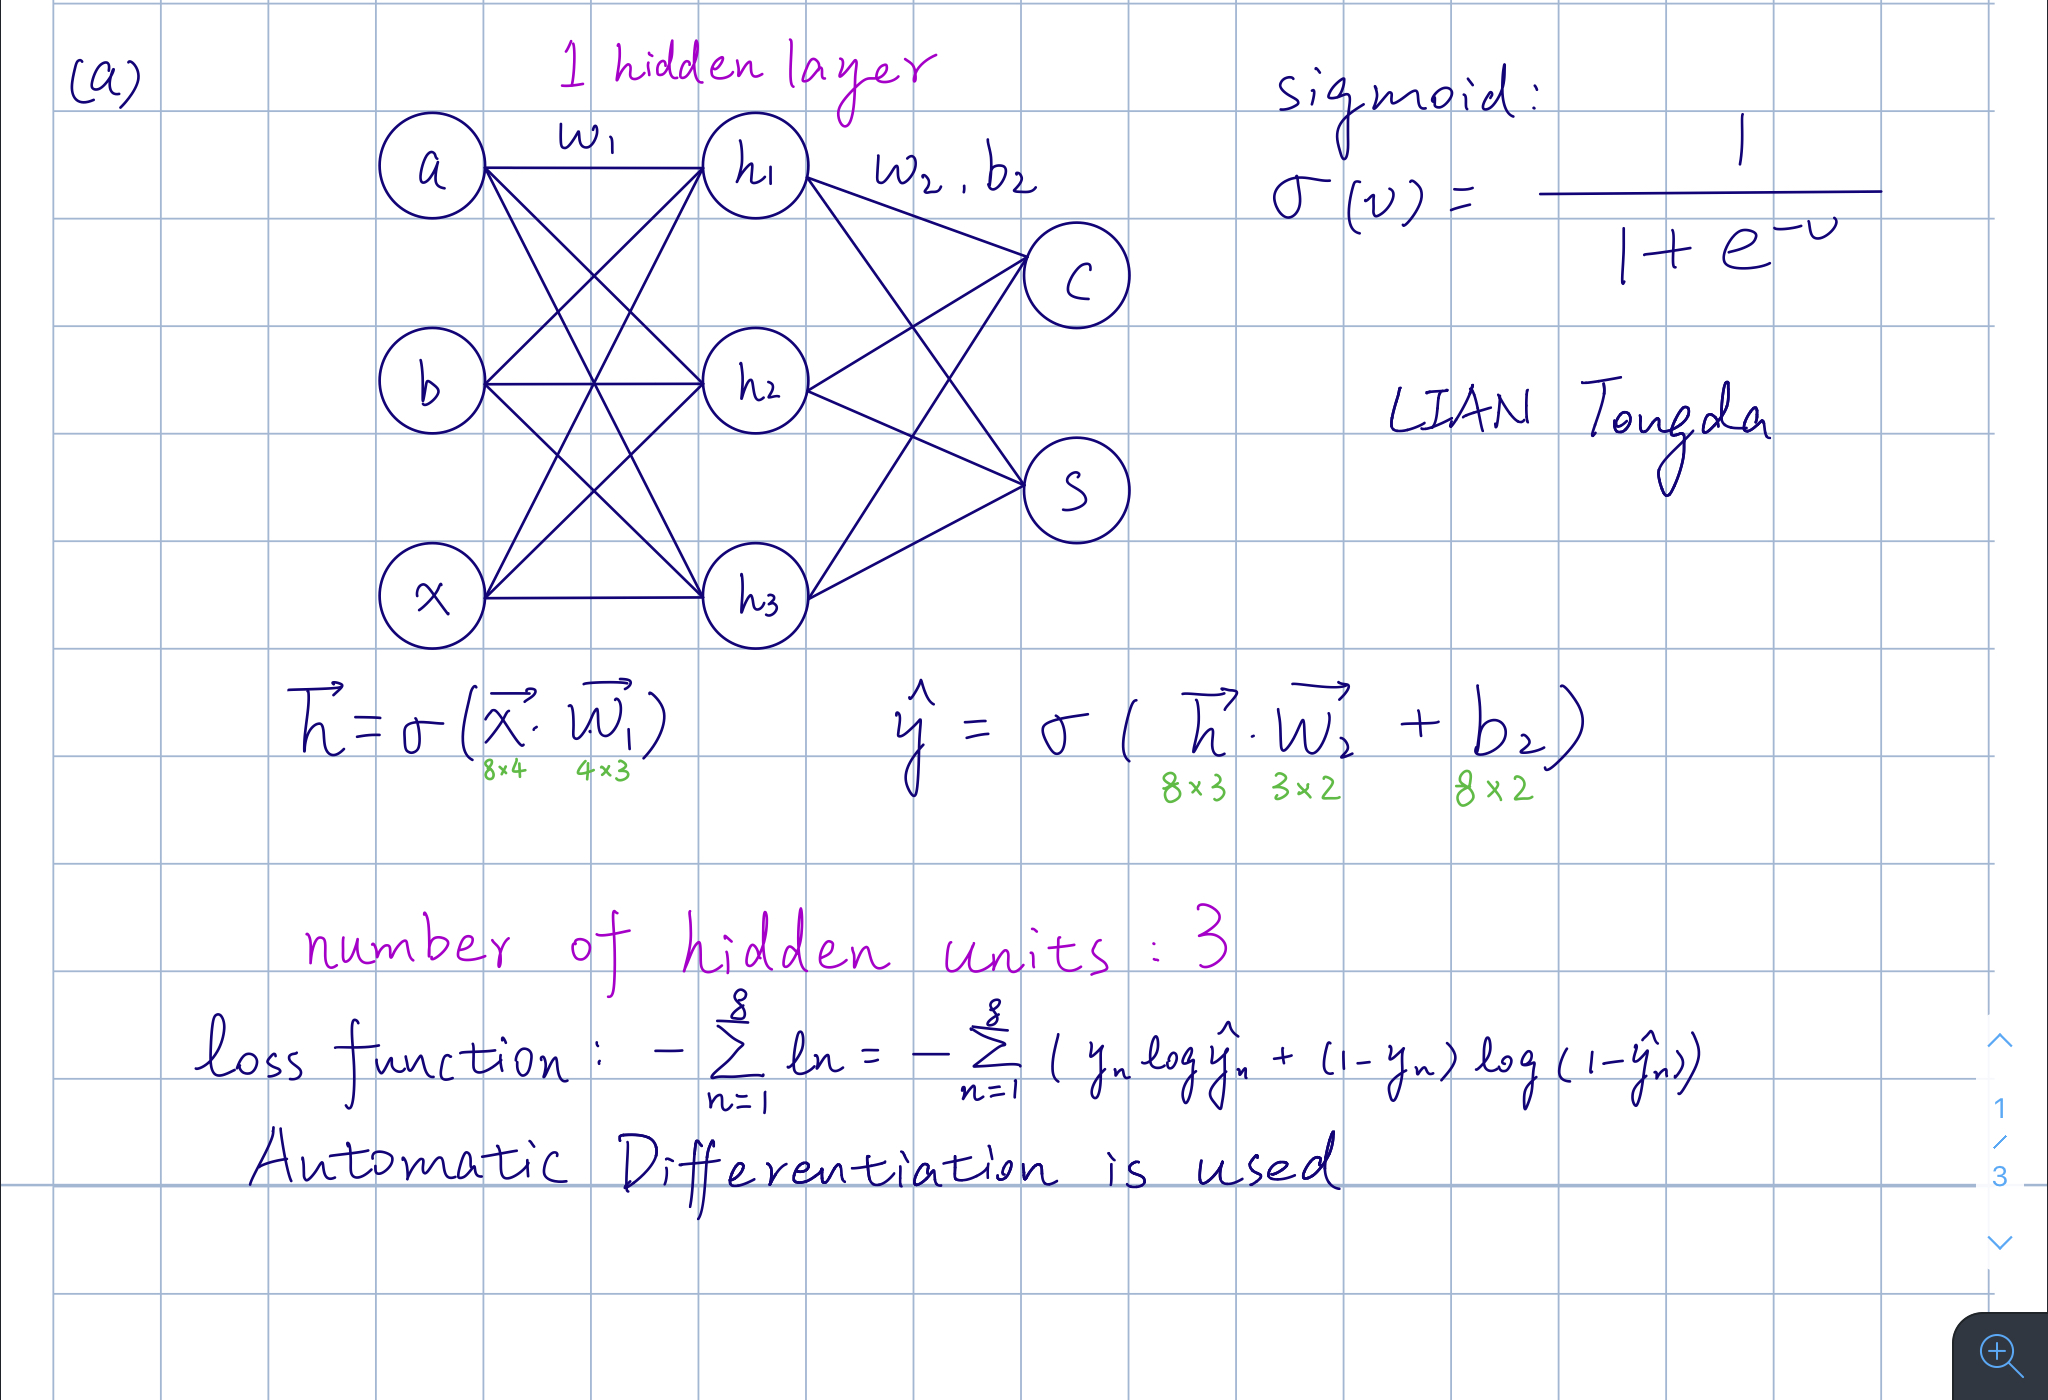 (a)
1 hidden layer
a w₁ h₁ w₂, b₂
c
b h₂
s
x h₃
sigmoid:
σ(v) = 1 / (1 + e⁻ᵛ)
LIAN Tongda
h⃗ = σ(x⃗ · w⃗₁)
8×4 4×3
ŷ = σ(h⃗ · w⃗₂ + b₂)
8×3 3×2 8×2
number of hidden units : 3
loss function: - ∑ₙ₌₁⁸ ln = - ∑ₙ₌₁⁸ (yₙ log ŷₙ + (1-yₙ) log (1-ŷₙ))
Automatic Differentiation is used
1
/
3